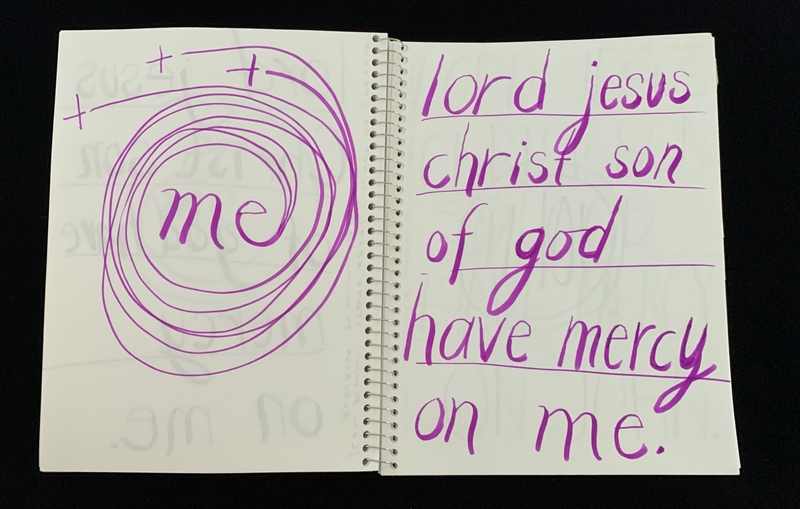 me
lord jesus
christ son
of god
have mercy
on me.